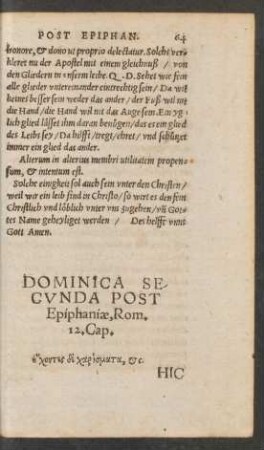 POST EPIPHAN. 64
honore, & dono ut proprio delectatur. Solchs ver-
kleret nu der Apostel mit einem gleichnuß / von
den Gliedern in unserm leibe. Q. D. Sehet wie fein
alle glieder untereinander eintrechtig sein / Da wil
keines besser sein weder das ander / der Fuß wil nit
die Hand / die Hand wil nit das Auge sein. Ein yg-
lich glied lässet ihm daran benügen / das es ein glied
des Leibs sey / Da hilfft / tregt / ehret / und schützet
immer ein glied das ander.
Alterum in alterius membri utilitatem propen-
sum, & intentum est.
Solche einigkeit sol auch sein unter den Christen /
weil wir ein leib sind in Christo / so wirt es den fein
Christlich und löblich unter uns zugehen / uñ Got-
tes Name geheyliget werden / Des helffe uns
Gott Amen.
DOMINICA SE-
CVNDA POST
Epiphaniæ, Rom.
12. Cap.
ἔχοντες δὲ χαρίσματα, &c.
HIC